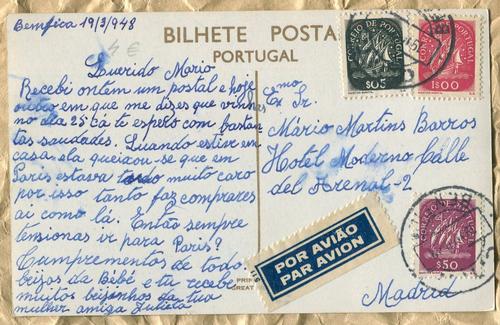 Bemfica 19/3/948
4 €
BILHETE POSTA
PORTUGAL
Querido Mario
Recebi ontem um postal e hoje
outro em que me dizes que vinhas
no dia 25 cá te espero com bastan
tas saudades. Quando estive em
casa ela queixou-se que em
Paris estava tudo muito caro
por isso tanto faz comprares
ai como lá. Então sempre
tensionas ir para Paris?
Cumprementos de todos
beijos da Bébé e tu recebe
muitos beijinhos da tua
mulher amiga Julieta
Exmo Sr.
Mário Martins Barros
Hotel Moderno Calle
del Arenal-2
Madrid
POR AVIÃO
PAR AVION
CORREIO DE PORTUGAL
$05
CORREIO DE PORTUGAL
1$00
CORREIO DE PORTUGAL
$50
PRIN
GREAT